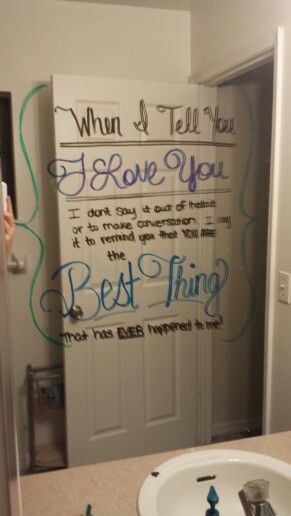 When I Tell You
I Love You
I dont say it out of
or to make conversation. I say
it to remind you that YOU ARE
the
Best Thing
That has EVER happened to me!